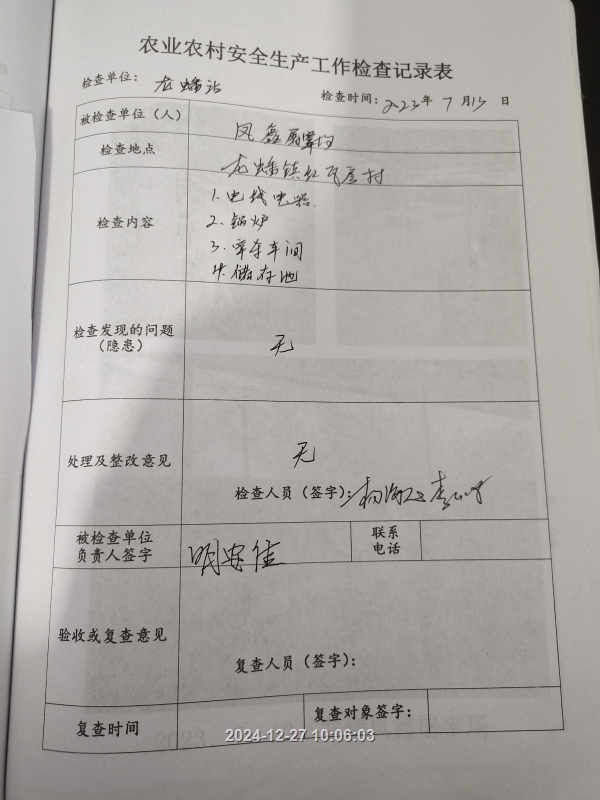 农业农村安全生产工作检查记录表
检查单位： 龙蟠站
检查时间：2023年 7 月13 日
被检查单位（人）
凤鑫屠宰场
检查地点
龙蟠镇红瓦屋村
检查内容
1. 电线电器.
2. 锅炉
3. 宰杀车间
4. 储存池
检查发现的问题
（隐患）
无
处理及整改意见
无
检查人员（签字）：
被检查单位
负责人签字
联系
电话
验收或复查意见
复查人员（签字）：
复查时间
复查对象签字：
2024-12-27 10:06:03